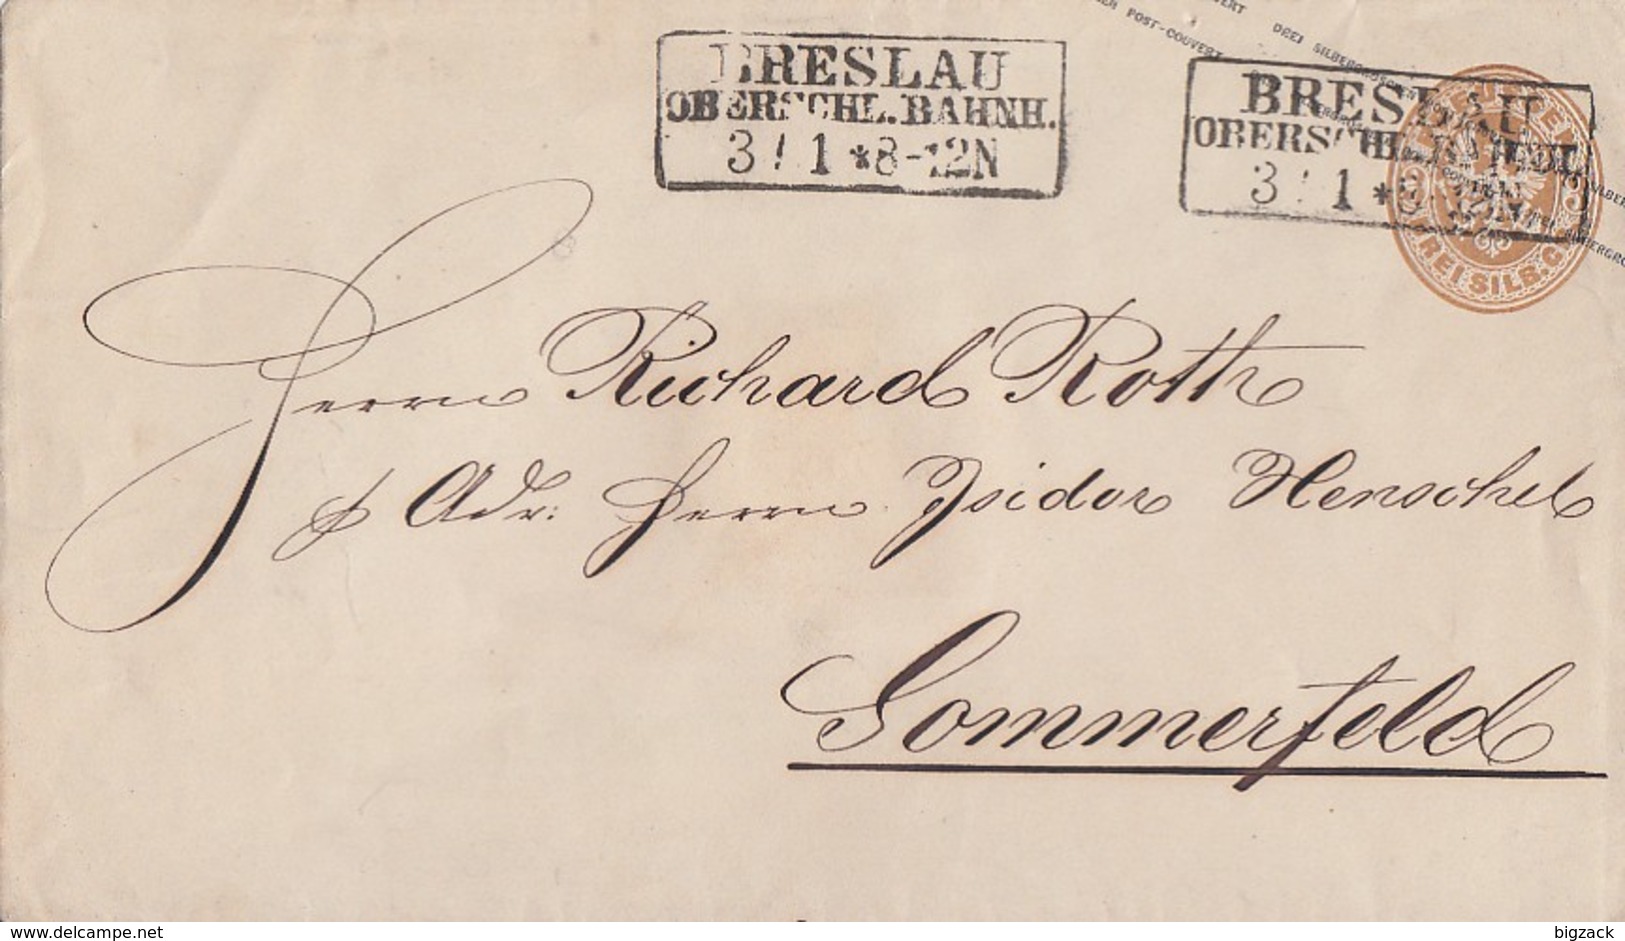 BRESLAU
OBERSCHL. BAHNH.
3 / 1 * 8-12N
BRESLAU
OBERSCHL. BAHNH.
3 / 1 * 8-12N
POST-COUVERT
DREI SILBERGROSCHEN
DREI SILB. GR.
Herrn Richard Roth
p Adr: Herrn Isidor Henschel
Sommerfeld
delcampe.net
bigzack